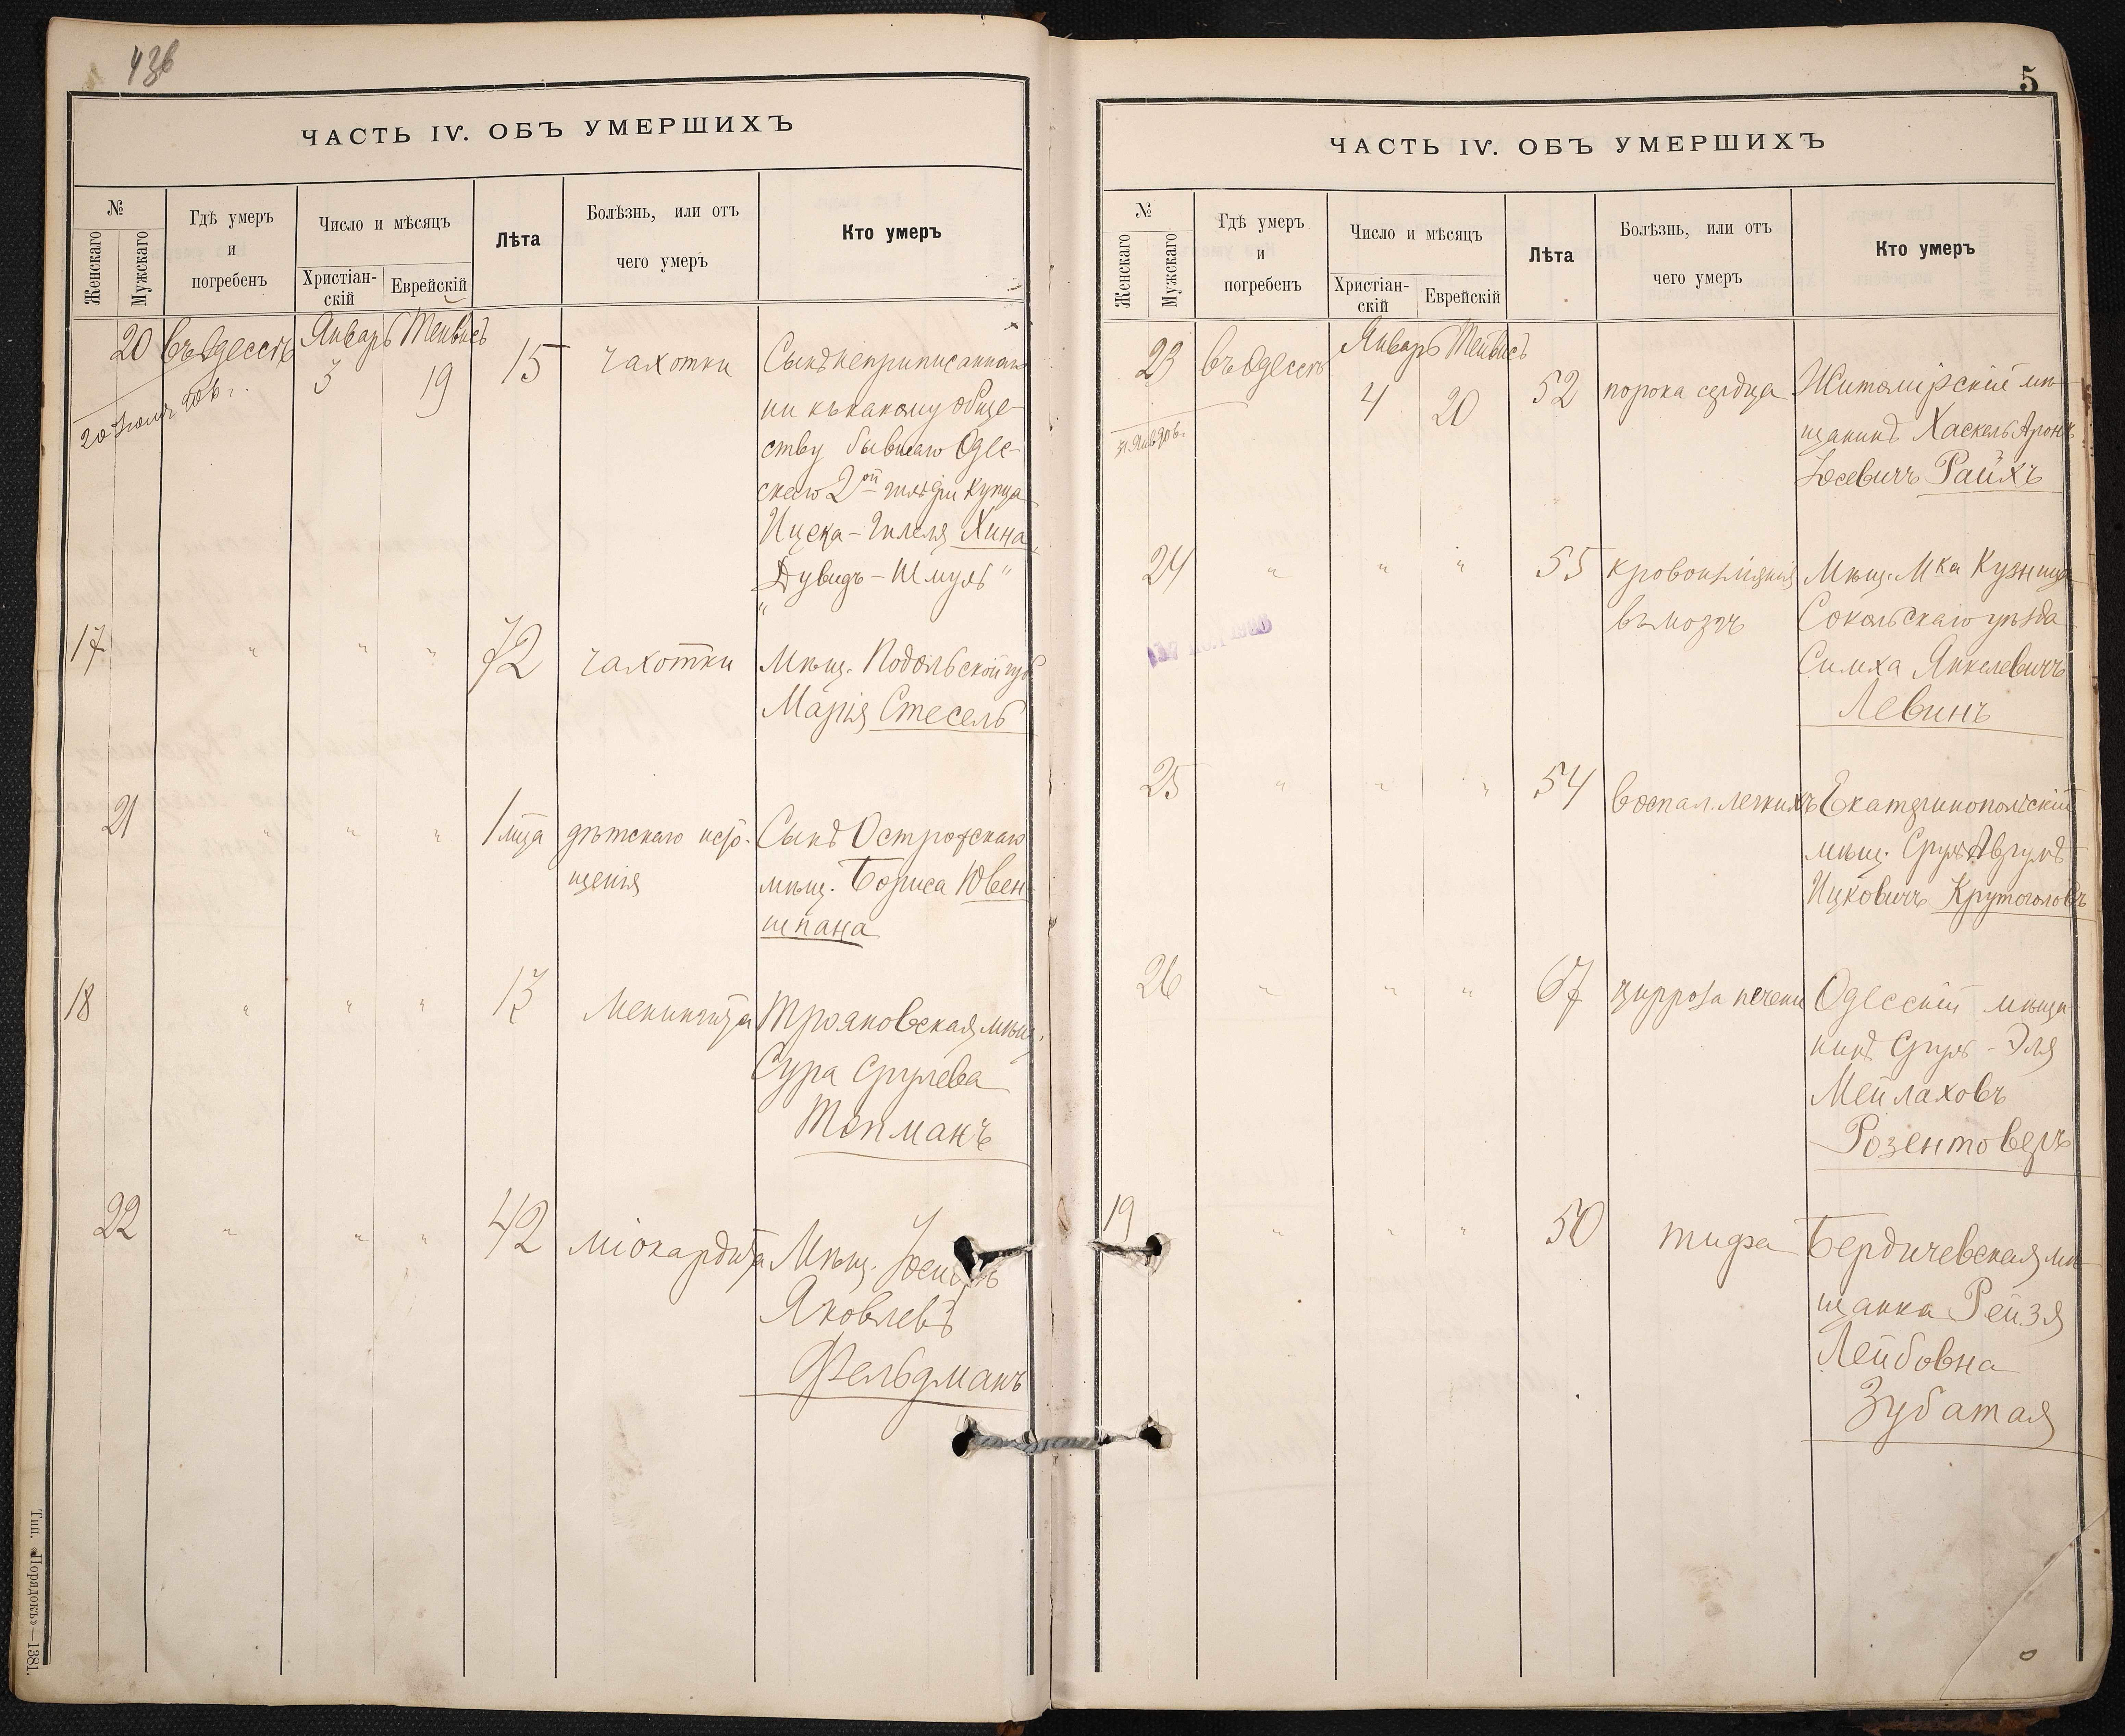 436
ЧАСТЬ IV. ОБЪ УМЕРШИХЪ
№
Женскаго
Мужскаго
Гдѣ умеръ
и
погребенъ
Число и мѣсяцъ
Христіан-
скій
Еврейскій
Лѣта
Болѣзнь, или отъ
чего умеръ
Кто умеръ
20 въ Одессѣ Январь Тейвисъ
3 19 15 чахотки Сынъ неприписаннаго
ни къ какому обще-
ству бывшаго Одес-
скаго 2ой гильдіи купца
Ицска-Гилеля Хина
"Дувидъ-Шмуль"
17 " " " 72 чахотки Мѣщ. Подольской губ
Марія Стесель
21 " " " 1 мца дѣтскаго исто-
щенія
Сынъ Острожскаго
мѣщ. Бориса Ювен-
шпана
18 " " " 13 менингита Трояновская мѣщ.
Сура Срулева
Топманъ
22 " " " 42 міокардита Мѣщ.
Яковлевъ
Фельдманъ
Тип. «Порядокъ»—1381.
5
ЧАСТЬ IV. ОБЪ УМЕРШИХЪ
№
Женскаго
Мужскаго
Гдѣ умеръ
и
погребенъ
Число и мѣсяцъ
Христіан-
скій
Еврейскій
Лѣта
Болѣзнь, или отъ
чего умеръ
Кто умеръ
23 въ Одессѣ Январь Тейвисъ
4 20 52 порока сердца Житомірскій мѣ-
щанинъ Хаскель Аронъ
Іосевичъ Райхъ
24 " " " 55 кровоизліянія
въ мозгъ
Мѣщ. М-ка Кузница
Сокольскаго уѣзда
Симха Янкелевичъ
Левинъ
25 " " " 54 воспал. легкихъ Екатеринопольскій
мѣщ. Сруль Аврумъ
Ицковичъ Крутоголовъ
26 " " " 67 цирроза печени Одесскій мѣща-
нинъ Сруль-Эля
Мейлаховъ
Розентоверъ
19 " " " 50 тифа Бердичевская мѣ-
щанка Рейзя
Лейбовна
Зубатая